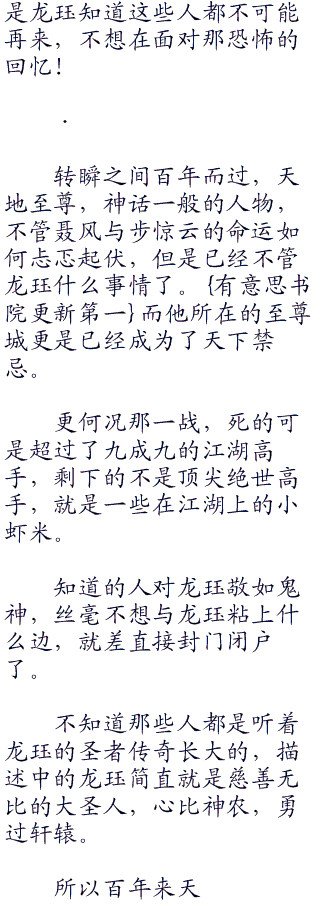 是龙珏知道这些人都不可能
再来，不想在面对那恐怖的
回忆！
.
转瞬之间百年而过，天
地至尊，神话一般的人物，
不管聂风与步惊云的命运如
何忐忑起伏，但是已经不管
龙珏什么事情了。{有意思书
院更新第一}而他所在的至尊
城更是已经成为了天下禁
忌。
更何况那一战，死的可
是超过了九成九的江湖高
手，剩下的不是顶尖绝世高
手，就是一些在江湖上的小
虾米。
知道的人对龙珏敬如鬼
神，丝毫不想与龙珏粘上什
么边，就差直接封门闭户
了。
不知道那些人都是听着
龙珏的圣者传奇长大的，描
述中的龙珏简直就是慈善无
比的大圣人，心比神农，勇
过轩辕。
所以百年来天